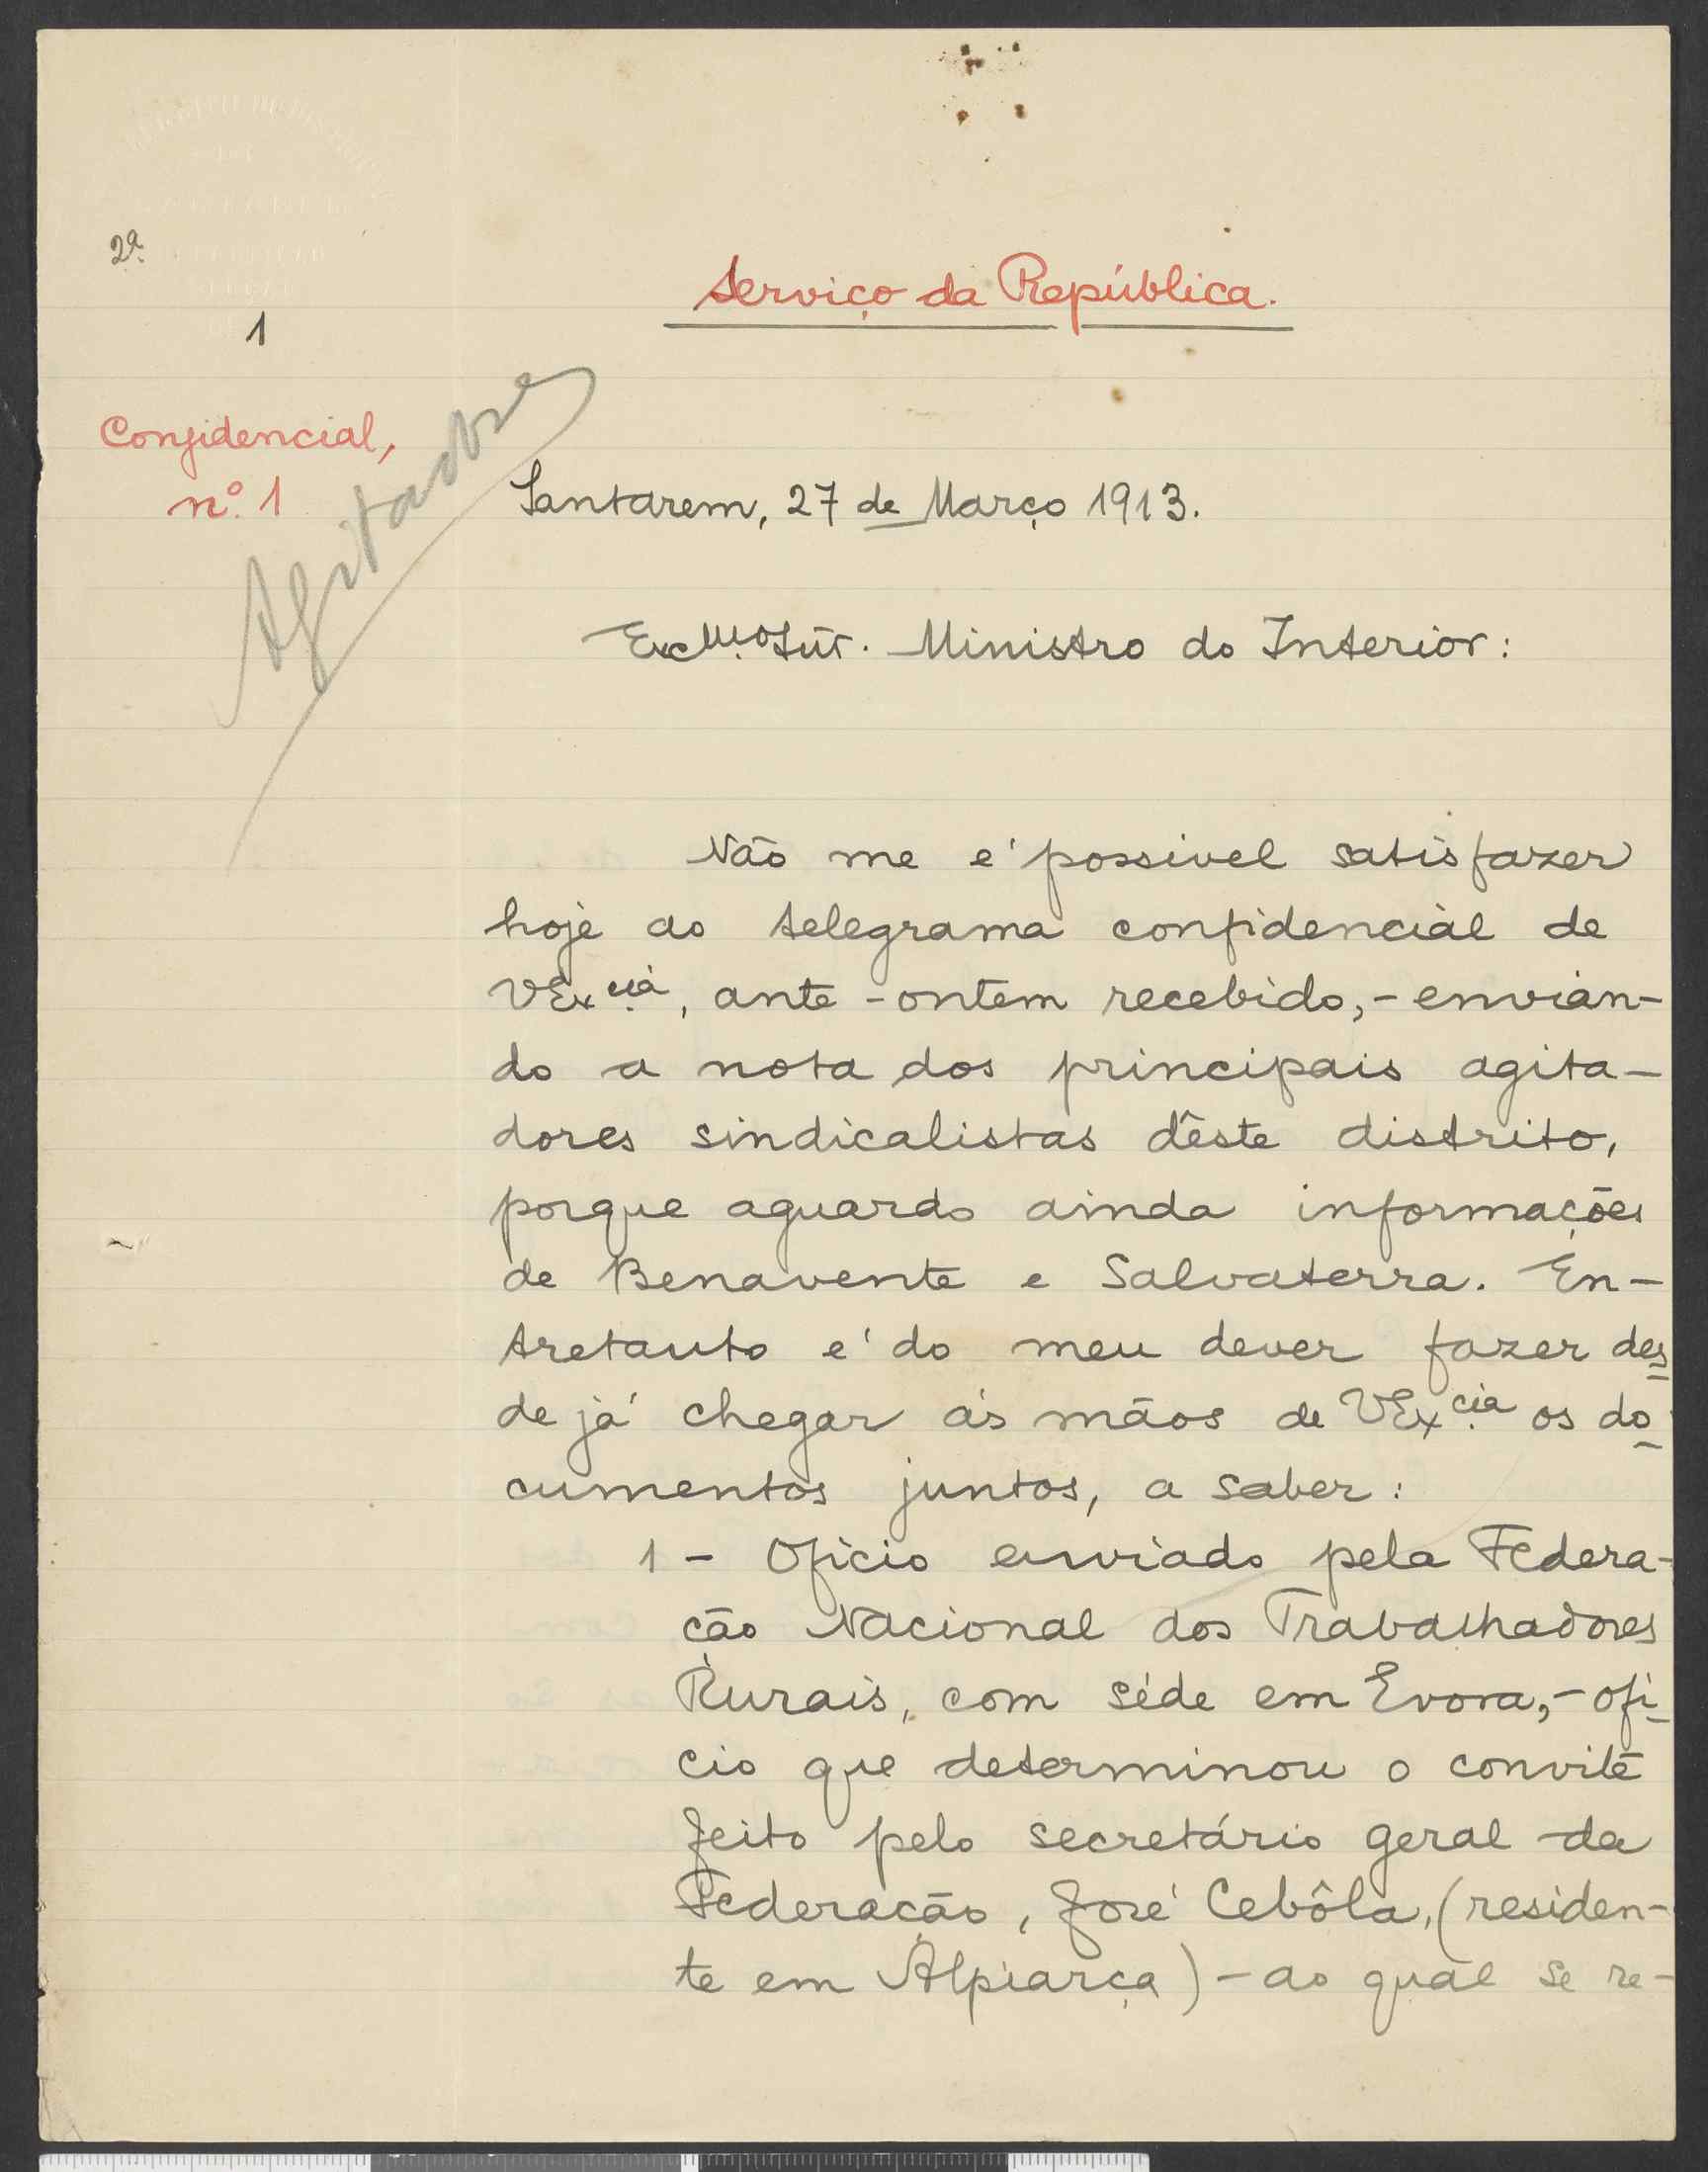 2ª
Serviço da República.
1
Confidencial,
nº 1
Agitadores
Santarem, 27 de Março 1913.
Excᵐᵒ Snr. Ministro do Interior:
Não me é possivel satisfazer
hoje ao telegrama confidencial de
VExᶜⁱᵃ, ante-ontem recebido,-envian-
do a nota dos principais agita-
dores sindicalistas dêste distrito,
porque aguardo ainda informações
de Benavente e Salvaterra. En-
tretanto é do meu dever fazer des
de já chegar ás mãos de VExᶜⁱᵃ os do
cumentos juntos, a saber:
1 - Oficio enviado pela Federa-
ção Nacional dos Trabalhadores
Rurais, com séde em Evora,-ofi
cio que determinou o convite
feito pelo secretário geral da
Federação, José Cebôla, (residen-
te em Alpiarça) - ao qual se re-